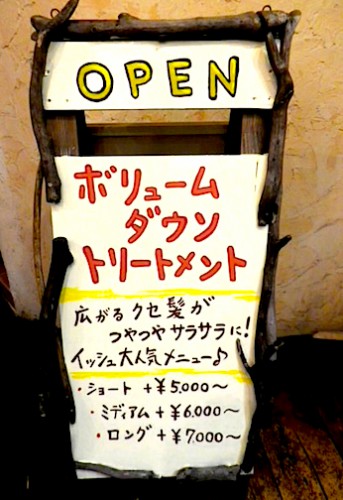 OPEN
ボリューム
ダウン
トリートメント
広がるクセ髪が
つやつやサラサラに!
イッシュ大人気メニュー♪
・ショート +¥5,000〜
・ミディアム+¥6,000〜
・ロング+¥7,000〜